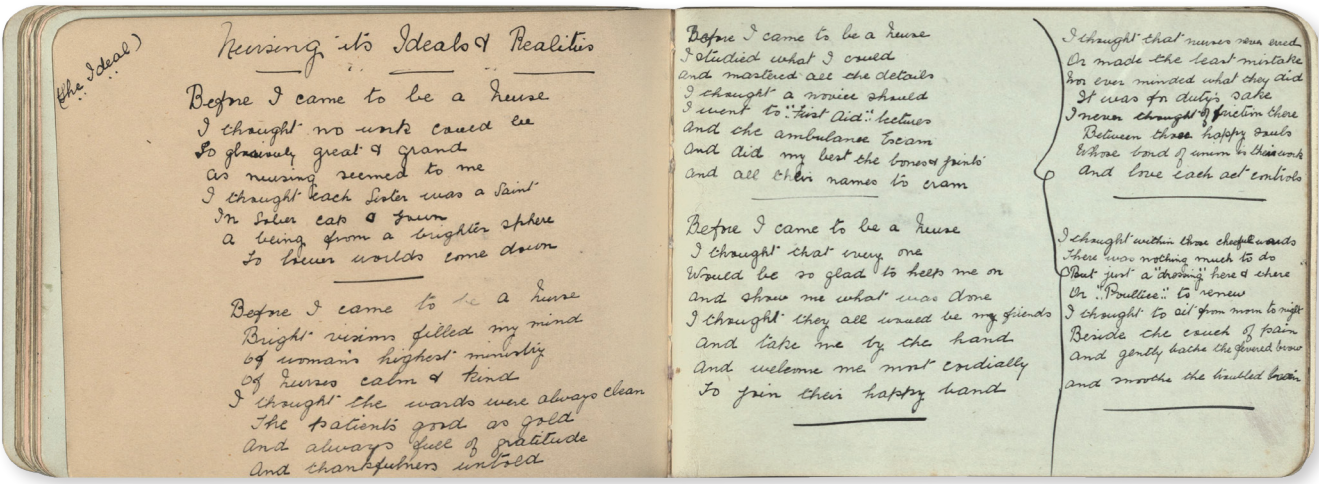 (the Ideal)
Nursing its Ideals & Realities
Before I came to be a Nurse
I thought no work could be
So gloriously great & grand
as nursing seemed to me
I thought each Sister was a Saint
In Sober cap & gown
a being from a brighter sphere
To lower worlds come down
Before I came to be a Nurse
Bright visions filled my mind
Of woman's highest ministry
Of Nurses calm & kind
I thought the wards were always clean
The patients good as gold
And always full of gratitude
And thankfulness untold
Before I came to be a Nurse
I studied what I could
and mastered all the details
I thought a novice should
I went to "First Aid" lectures
And the ambulance Exam
And did my best the bones & joints
And all their names to cram
Before I came to be a Nurse
I thought that every one
Would be so glad to help me on
and show me what was done
I thought they all would be my friends
And take me by the hand
And welcome me most cordially
To join their happy band
I thought that nurses never erred
Or made the least mistake
Nor ever minded what they did
It was for duty's sake
I never thought of friction there
Between those happy souls
Whose bond of union is their work
And love each act controls
I thought within those cheerful wards
There was nothing much to do
But just a "dressing" here & there
Or "Poultice" to renew
I thought to sit from morn to night
Beside the couch of pain
And gently bathe the fevered brow
And smoothe the troubled brain